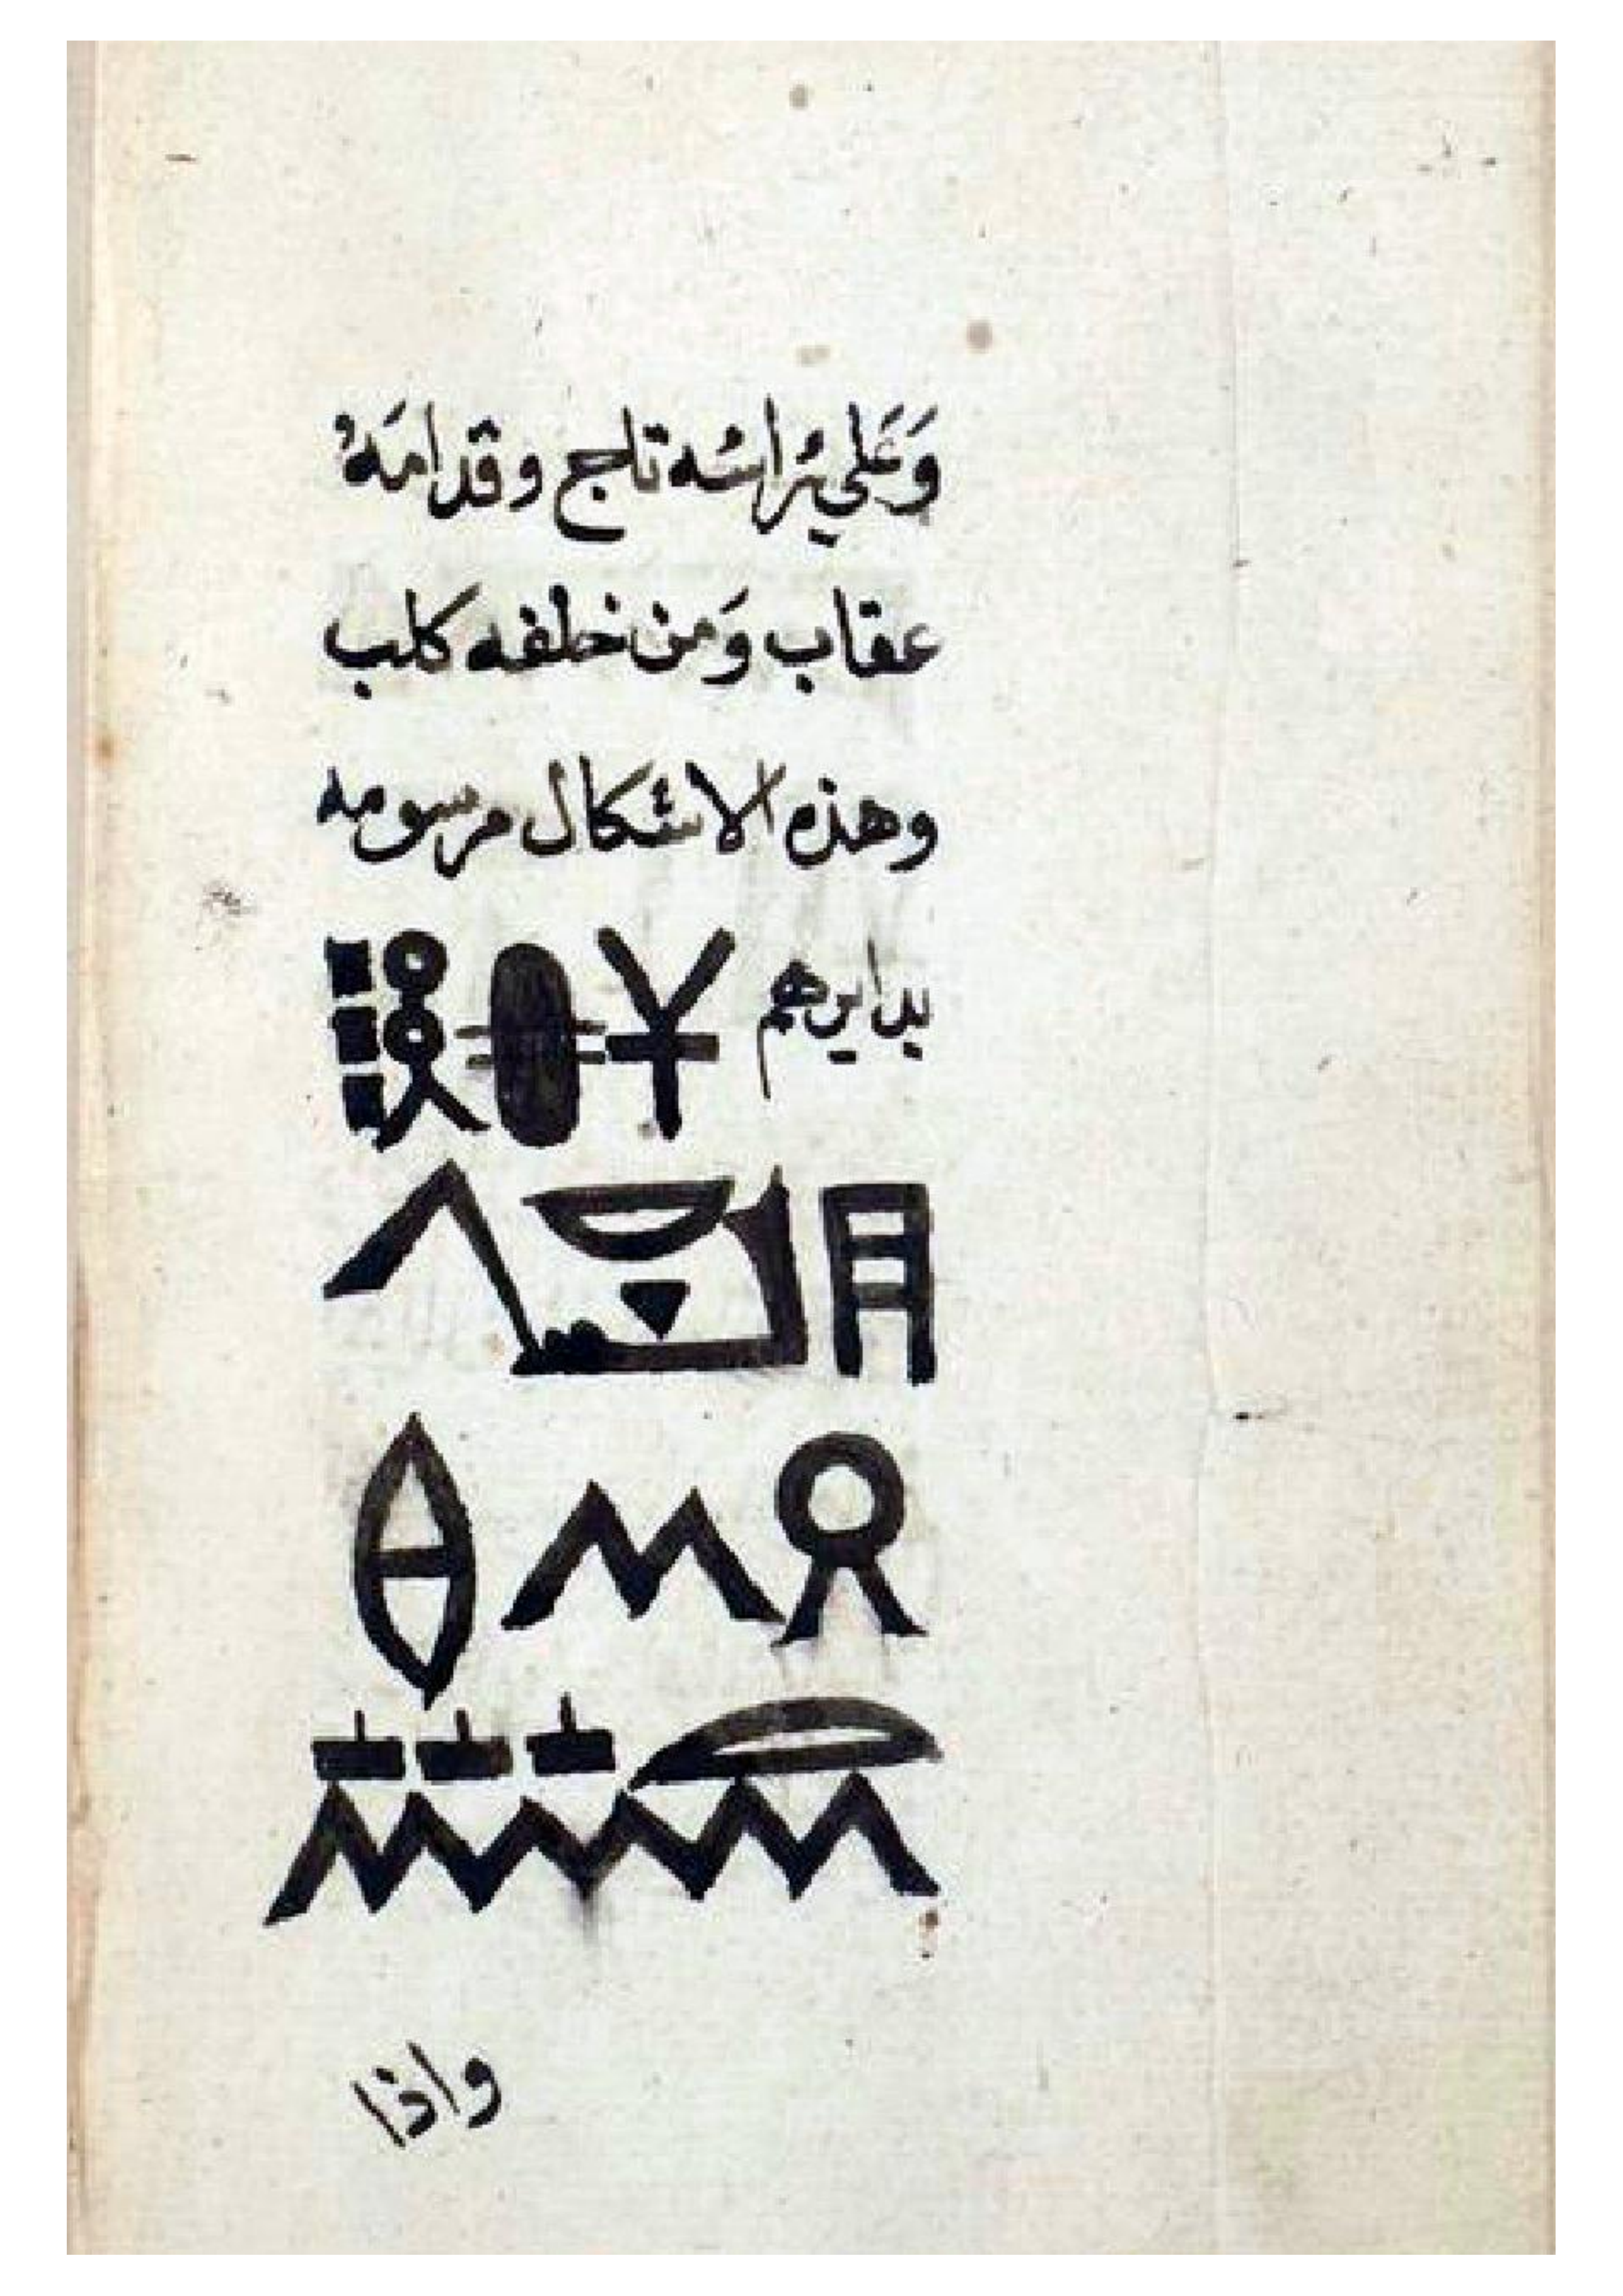 وَعَلي راسُه تاج وقدامَهُ
عقاب وَمن خلفه كلب
وهذه الاشكال مرسومه
بدايرهم
واذا